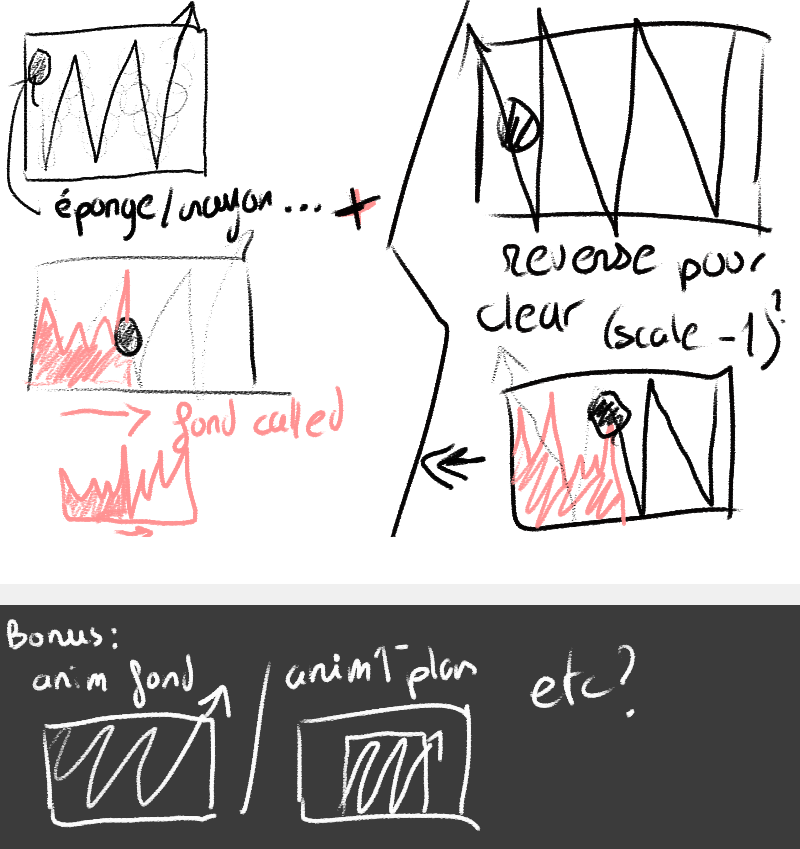 éponge/crayon... +
fond called
reverse pour
clear (scale -1)?
Bonus:
anim fond / anim 1er plan etc?